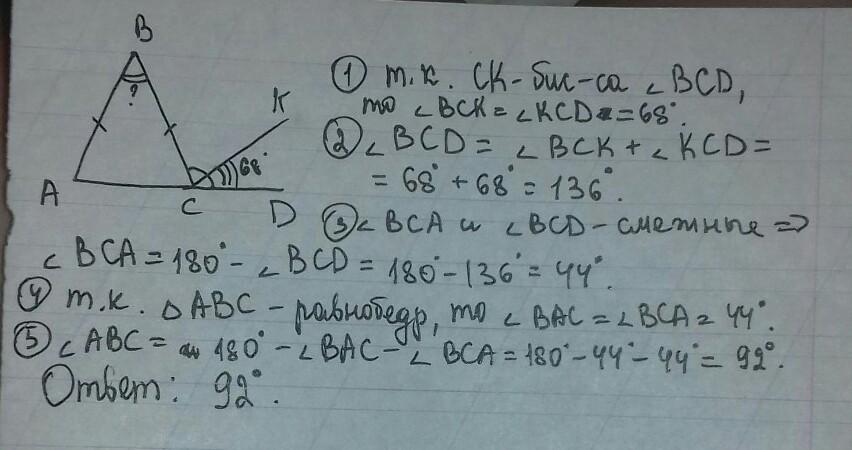 B
?
K
68°
A
C
D
① т.к. CK-бис-са ∠BCD,
то ∠BCK=∠KCD=68°.
② ∠BCD= ∠BCK+∠KCD=
= 68°+68°=136°.
③ ∠BCA и ∠BCD-смежные =>
∠BCA=180°-∠BCD=180°-136°=44°.
④ т.к. △ABC-равнобедр, то ∠BAC=∠BCA=44°.
⑤ ∠ABC= 180°-∠BAC-∠BCA=180°-44°-44°=92°.
Ответ: 92°.